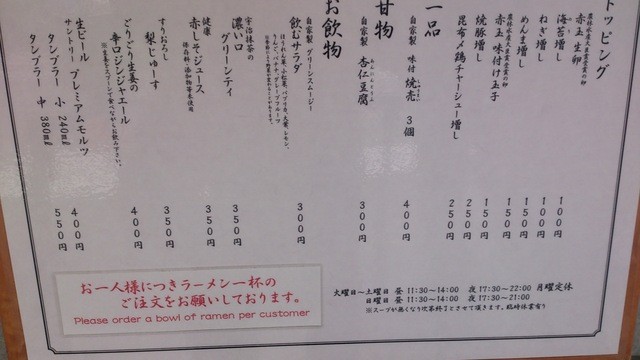 トッピング
農林水産大臣賞受賞の卵
赤玉 生卵
海苔増し 100円
ねぎ増し 100円
めんま増し 150円
農林水産大臣賞受賞の卵
赤玉 味付け玉子 150円
焼豚増し 250円
昆布〆鶏チャーシュー増し 250円
一品
自家製 味付 焼売 3個 400円
甘物
自家製 杏仁豆腐 300円
あんにんとうふ
お飲物
自家製 グリーンスムージー
飲むサラダ 300円
ほうれん草、小松菜、パプリカ、大葉、レモン、
りんご、バナナ、グレープフルーツ
宇治抹茶の
濃い口 グリーンティ 350円
健康
赤しそジュース 350円
保存料・添加物等未使用
すりおろし
梨しゅーす 350円
ごりごり生姜の
辛口ジンジャエール 400円
※生姜をスプーンで食べながらお飲み下さい。
生ビール
サントリー プレミアムモルツ
タンブラー 小 240㎖ 400円
タンブラー 中 380㎖ 550円
お一人様につきラーメン一杯の
ご注文をお願いしております。
Please order a bowl of ramen per customer
火曜日～土曜日 昼 11:30~14:00 夜 17:30~22:00 月曜定休
日曜日 昼 11:30~14:00 夜 17:30~21:00
※スープが無くなり次第終了とさせて頂きます。臨時休業有り